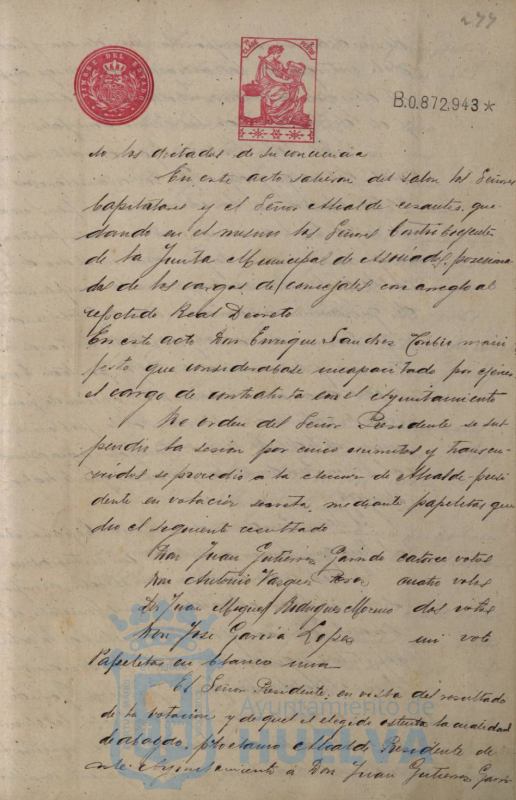 277
TIMBRE DEL ESTADO
B.0.872.943 *
los dictados de su conciencia
En este acto salieron del salon los Señores
Capitulares y el Señor Alcalde cesantes, que
dando en el mismo los Señores Contribuyentes
de la Junta Municipal de Asociados, posesiona
dos de los cargos de concejales con arreglo al
repetido Real Decreto
En este acto Don Enrique Sanchez mani
festo que considerabase incapacitado por ejercer
el cargo de contratista con el Ayuntamiento
De orden del Señor Presidente se sus
pendio la sesion por cinco minutos y transcu
rridos se procedio a la eleccion de Alcalde-presi
dente en votacion secreta, mediante papeletas que
dio el seguiente resultado
Don Juan Gutierrez Garindo catorce votos
Don Antonio Vazquez cuatro votos
Dn Juan Miguel Rodriguez Moreno dos votos
Don José Garcia Lopez un voto
Papeletas en blanco una
El Señor Presidente, en vista del resultado
de la votacion y de que el elegido ostenta la cualidad
de abogado, proclamo Alcalde Presidente de
este Ayuntamiento á Don Juan Gutierrez Garin
Ayuntamiento de
HUELVA